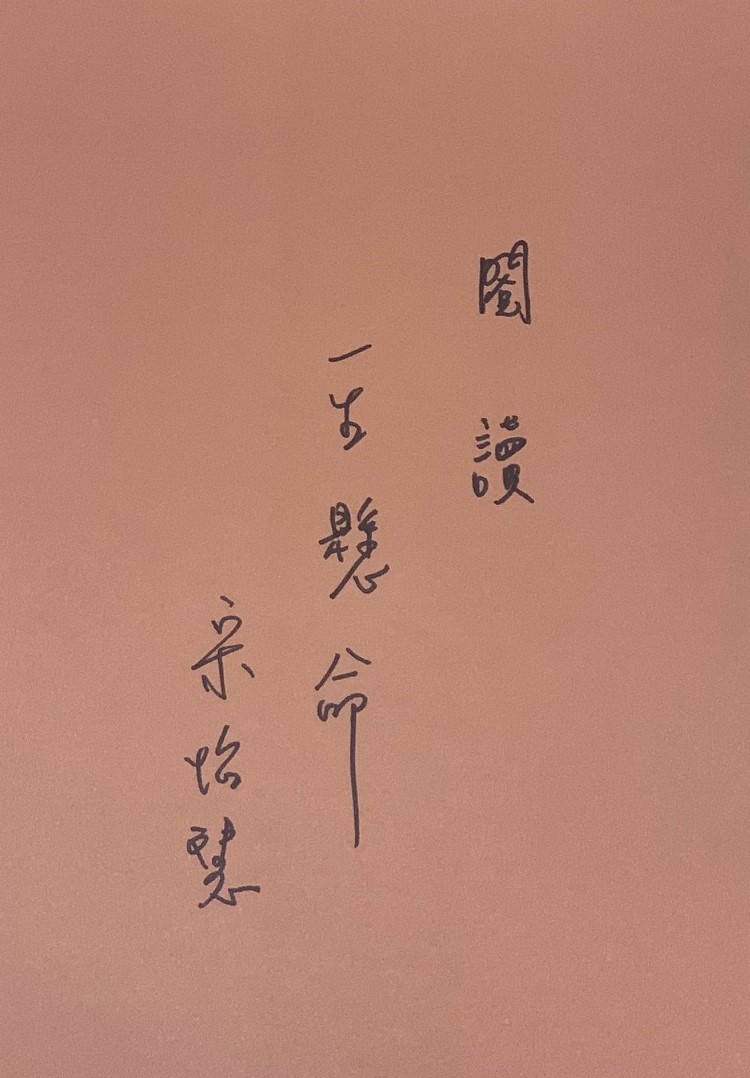 閱讀
一生懸命
宋怡慧